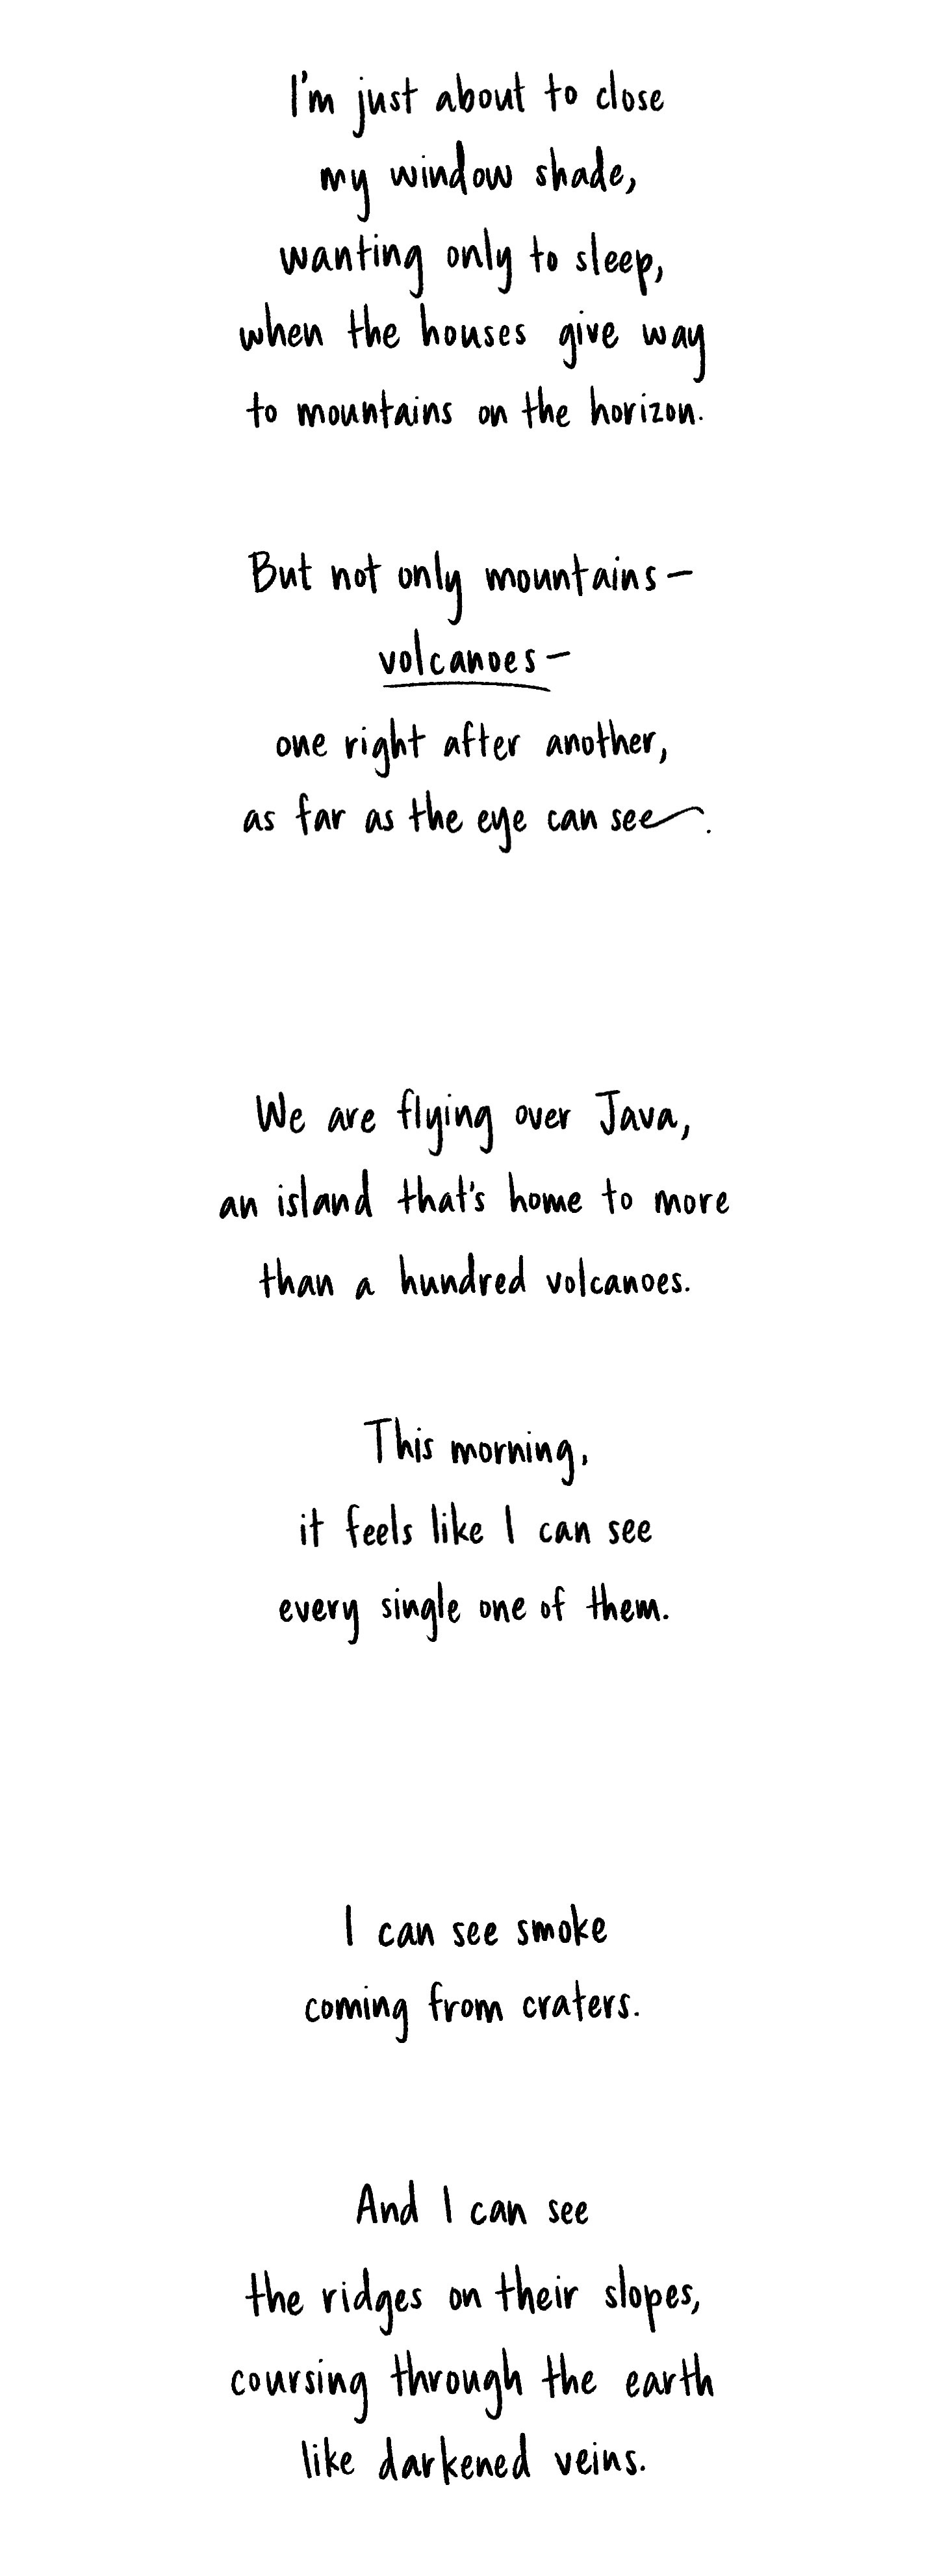 I'm just about to close
my window shade,
wanting only to sleep,
when the houses give way
to mountains on the horizon.
But not only mountains—
volcanoes—
one right after another,
as far as the eye can see.
We are flying over Java,
an island that's home to more
than a hundred volcanoes.
This morning,
it feels like I can see
every single one of them.
I can see smoke
coming from craters.
And I can see
the ridges on their slopes,
coursing through the earth
like darkened veins.